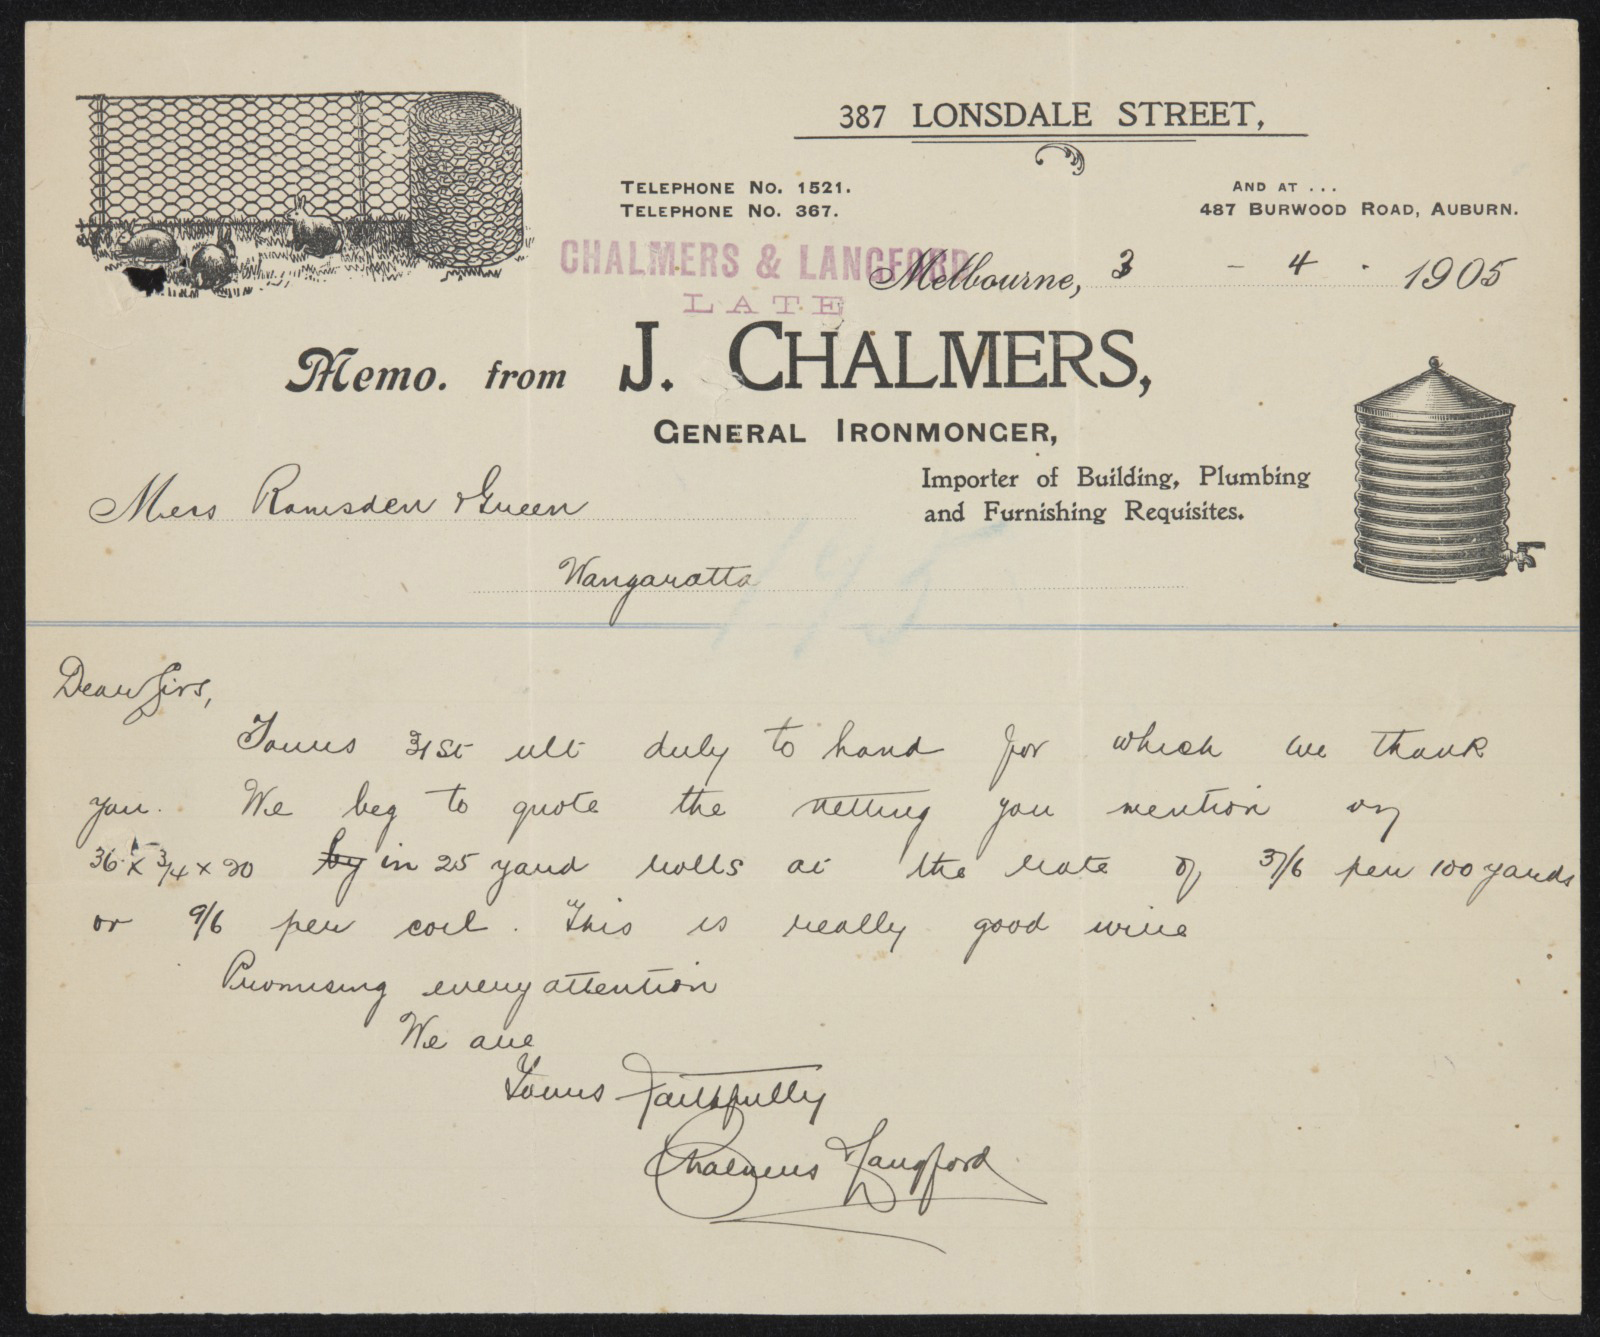 387 LONSDALE STREET,
TELEPHONE NO. 1521.
TELEPHONE NO. 367.
AND AT ...
487 BURWOOD ROAD, AUBURN.
CHALMERS & LANGFORD
LATE
Melbourne, 3 - 4 · 1905
Memo. from J. CHALMERS,
GENERAL IRONMONGER,
Importer of Building, Plumbing
and Furnishing Requisites.
Mess Ramsden & Green
Wangaratta
195
Dear Sirs,
Yours 31st ult duly to hand for which we thank
you. We beg to quote the netting you mention viz
36 x 3/4 x 20 by in 25 yard rolls at the rate of 37/6 per 100 yards
or 9/6 per coil. This is really good wire
Promising every attention
We are
Yours Faithfully
Chalmers & Langford